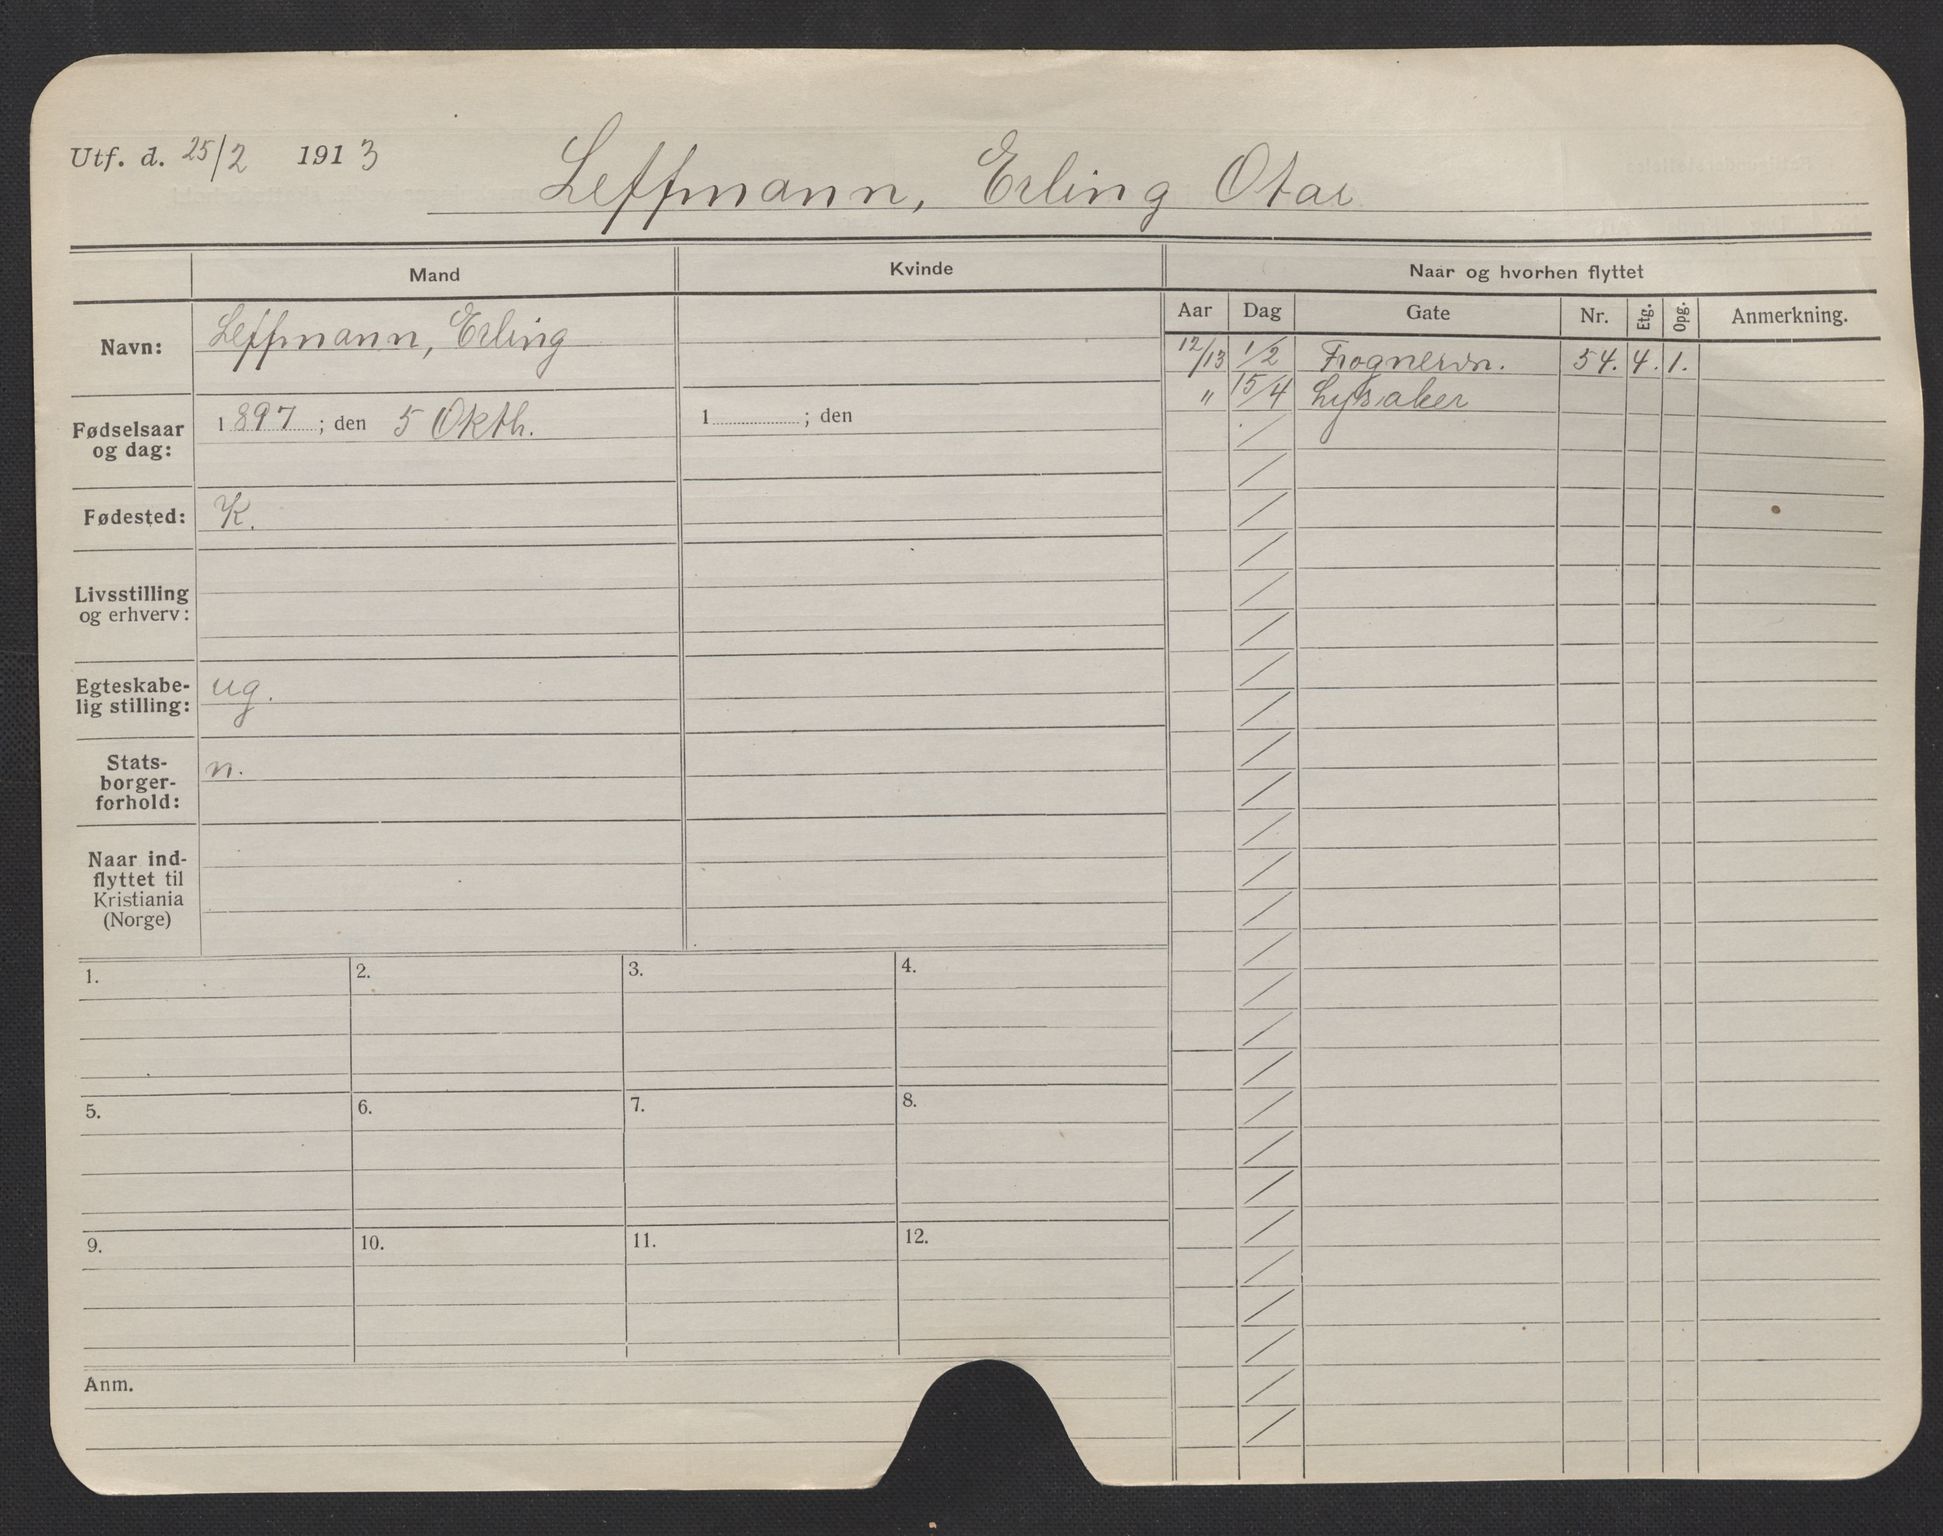 Utf. d. 25/2 1913
Leffmann, Erling Otar
Mand
Kvinde
Naar og hvorhen flyttet
Aar Dag Gate Nr. Etg. Opg. Anmerkning.
Navn: Leffmann, Erling
12/13 1/2 Frognervn. 54. 4. 1.
" 15/4 Lysaker
Fødselsaar og dag: 1897; den 5 Okth. 1 ; den
Fødested: K.
Livsstilling
og erhverv:
Egteskabe-
lig stilling: ug.
Stats-
borger-
forhold: n.
Naar ind-
flyttet til
Kristiania
(Norge)
1. 2. 3. 4.
5. 6. 7. 8.
9. 10. 11. 12.
Anm.